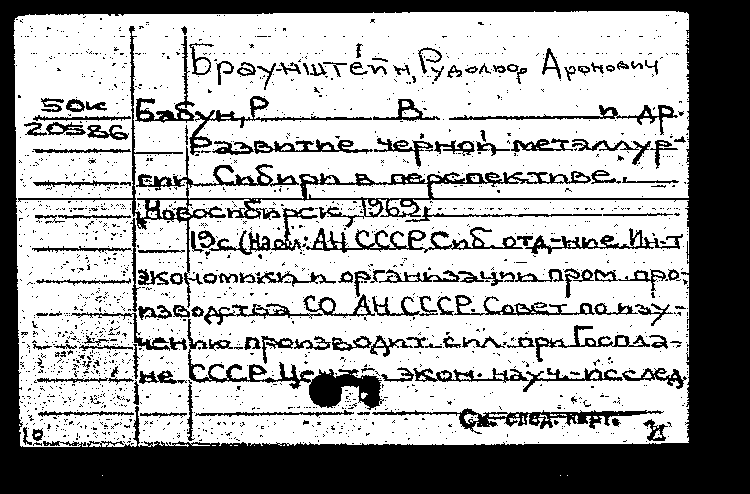 Браунштейн, Рудольф Аронович
50к
20586
Бабун, Р В. и др.
Развитие черной металлур-
гии Сибири в перспективе.
Новосибирск, 1969г.
19с (Надл: АН СССР. Сиб. отд-ние. Ин-т
экономики и организации пром. про-
изводства СО АН СССР. Совет по изу-
чению производит. сил. при Госпла-
не СССР. Центр. экон. науч.-исслед.
См. след. карт.
10